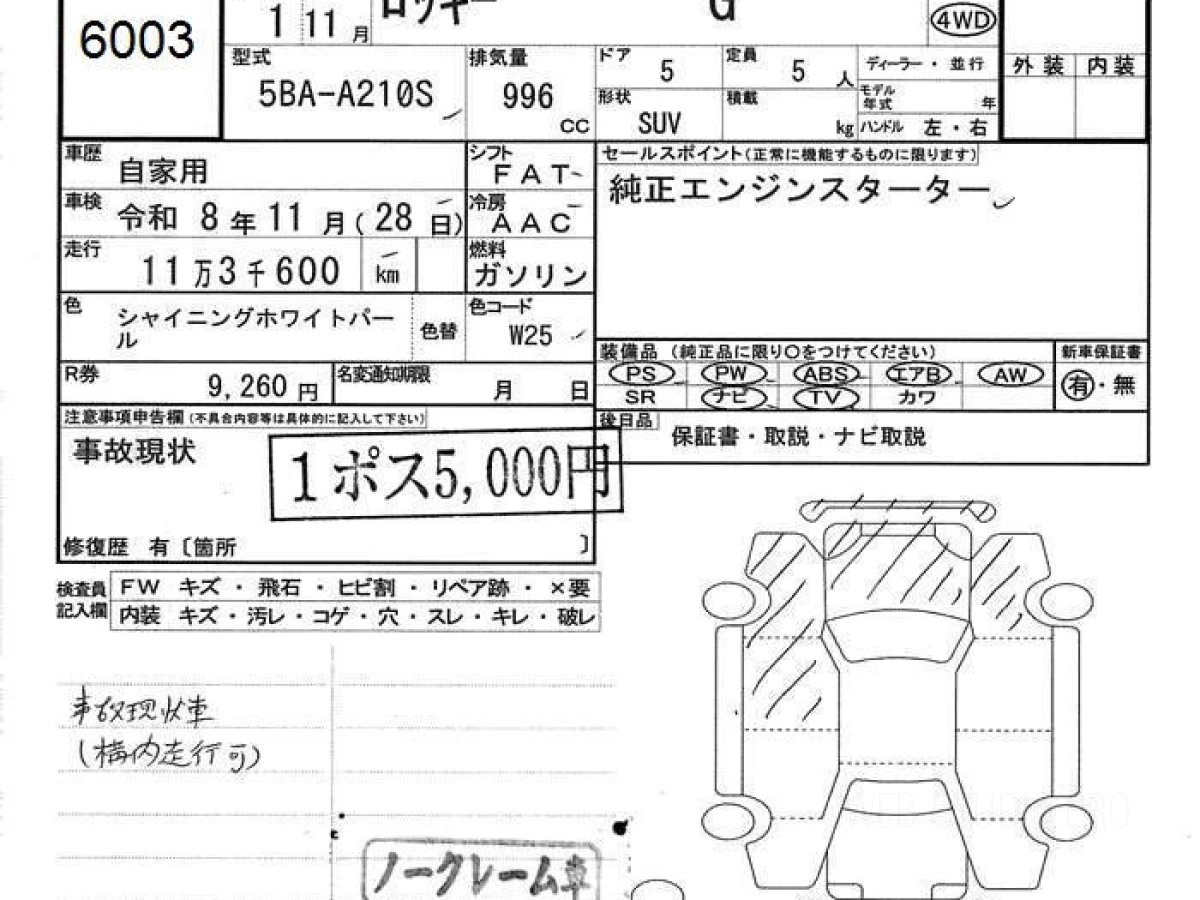 6003
1 11 月
ロッキー G
4WD
型式
5BA-A210S
排気量
996
CC
ドア
5
定員
5 人
形状
SUV
積載
kg
ディーラー・並行
モデル年式 年
ハンドル 左・右
外装 内装
車歴
自家用
シフト
FAT
車検
令和 8年11月(28日)
冷房
AAC
走行
11万3千600 km
燃料
ガソリン
色
シャイニングホワイトパール
色替
色コード
W25
R券
9,260 円
名変通知期限
月 日
セールスポイント(正常に機能するものに限ります)
純正エンジンスターター
装備品 (純正品に限り○をつけてください)
新車保証書
PS PW ABS エアB AW
有・無
SR ナビ TV カワ
後日品
保証書・取説・ナビ取説
注意事項申告欄(不具合内容等は具体的に記入して下さい)
事故現状
1ポス5,000円
修復歴 有〔箇所 〕
検査員記入欄
FW キズ・飛石・ヒビ割・リペア跡・×要
内装 キズ・汚レ・コゲ・穴・スレ・キレ・破レ
事故現状車
(構内走行可)
ノークレーム車